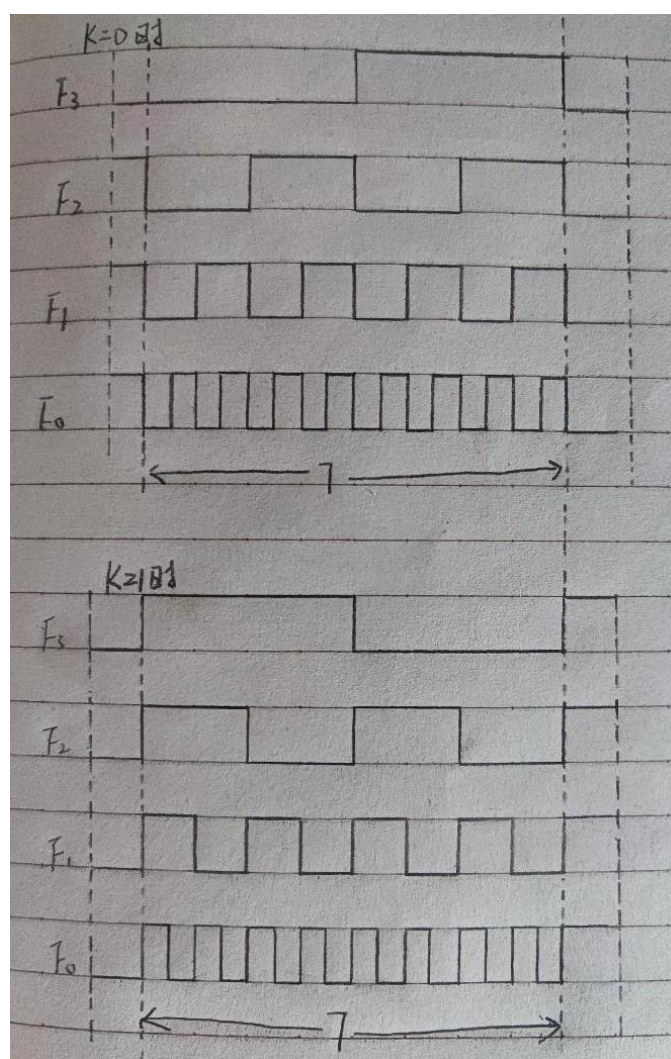 K=0时
F₃
F₂
F₁
F₀
T
K=1时
F₃
F₂
F₁
F₀
T